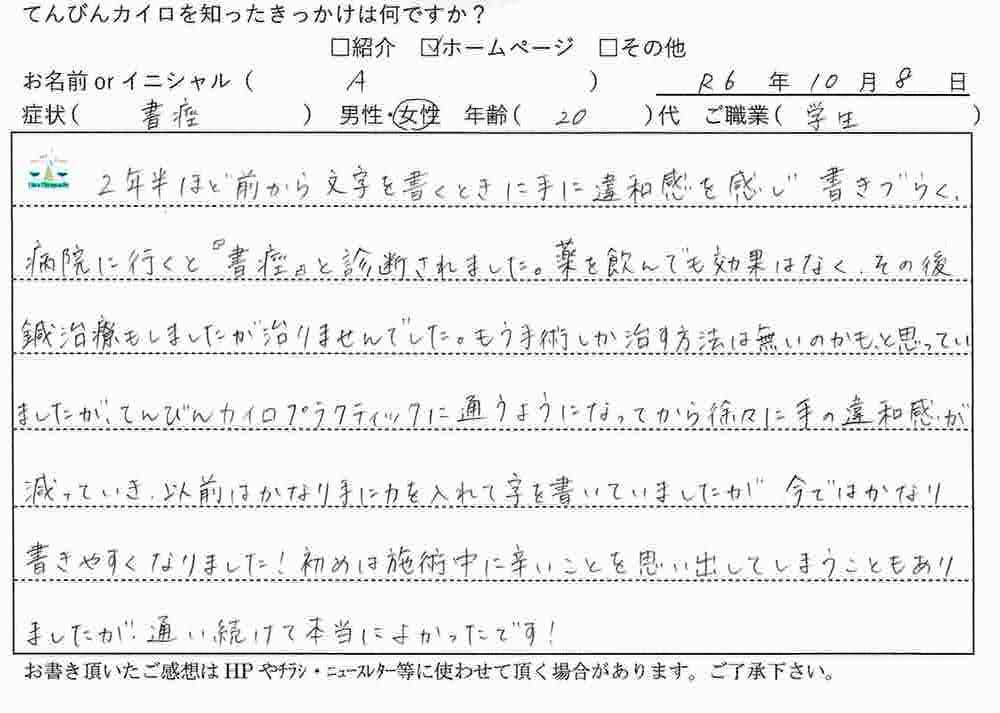 てんびんカイロを知ったきっかけは何ですか？
□紹介 ☑ホームページ □その他
お名前 or イニシャル（ A ） R6 年 10 月 8 日
症状（ 書痙 ） 男性・女性 年齢（ 20 ）代 ご職業（ 学生 ）
2年半ほど前から文字を書くときに手に違和感を感じ 書きづらく、
病院に行くと『書痙』と診断されました。薬を飲んでも効果はなく、その後
鍼治療もしましたが治りませんでした。もう手術しか治す方法は無いのかも、と思ってい
ましたが、てんびんカイロプラクティックに通うようになってから徐々に手の違和感が
減っていき、以前はかなり手に力を入れて字を書いていましたが 今ではかなり
書きやすくなりました！初めは施術中に辛いことを思い出してしまうこともあり
ましたが、通い続けて本当によかったです！
お書き頂いたご感想は HP やﾁﾗｼ・ﾆｭｰｽﾚﾀｰ等に使わせて頂く場合があります。ご了承下さい。